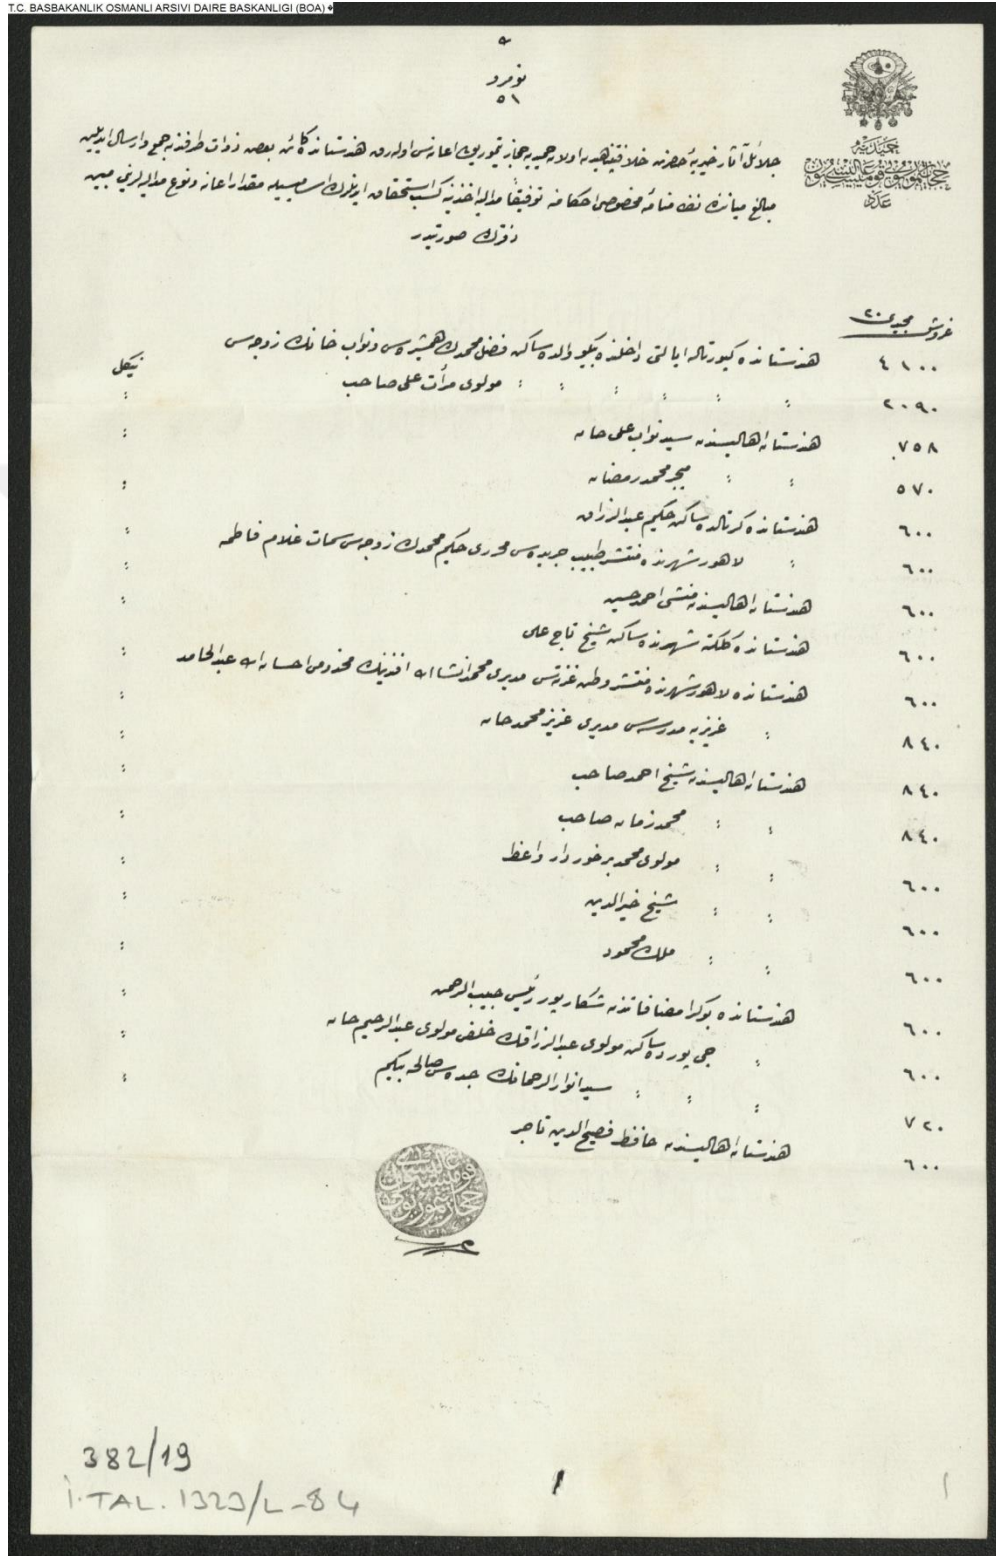 T.C. BASBAKANLIK OSMANLI ARSIVI DAIRE BASKANLIGI (BOA)
نومرو
٥١
جلائل آثار خيريۀ حضرت خلافتپناهيدن اولان حميديه حجاز تيموريولى اعانه سى اوله رق هندستانده كائن بعض ذوات طرفندن جمع وارسال ايديلن
مبالغ مياننده نظامنامۀ مخصوصى احكامنه توفيقاً مداليه اخذينه كسب استحقاق ايدنلرك اساميسيله مقدار اعانه ونوع مداليه لرينى مبين
دفترك صورتيدر
حميديه
حجاز تيموريولى قوميسيون عاليسى
عدد
غروش مجيدى ٢٠
٤١٠٠ هندستانده كپورتاله ايالتى داخلنده ساكن فضل محمدك همشيره سى ونواب خانك زوجه سى نيكل
٢٠٩٠ مولوى مرأت على صاحب
٧٥٨ هندستان اهاليسندن سيد نواب على خان
٥٧٠ ميجر محمد رمضان
٦٠٠ هندستانده كرنالده ساكن حكيم عبدالرزاق
٦٠٠ لاهور شهرنده منتشر طبيب جريده سى محررى حكيم محمدك زوجه سى سمات غلام فاطمه
٦٠٠ هندستان اهاليسندن منشى احمد حسين
٦٠٠ هندستانده كلكته شهرنده ساكن شيخ تاج على
٦٠٠ هندستانده لاهور شهرنده منتشر وطن غزته سى مديرى محمد انشاء الله افندينك مخدومى احسان الله عبدالحامد
٨٤٠ عزيزيه مدرسه سى مديرى عزيز محمد خان
٨٤٠ هندستان اهاليسندن شيخ احمد صاحب
٨٤٠ محمد زمان صاحب
٦٠٠ مولوى محمد برخوردار واعظ
٦٠٠ شيخ خيرالدين
٦٠٠ ملك محمود
٦٠٠ هندستانده مضافاتندن شكارپور رئيسى حبيب الرحمن
٦٠٠ جى پورده ساكن مولوى عبدالرزاقك خلفى مولوى عبدالرحيم خان
٧٢٠ سيد انوار الرحمانك جده سى صالحه بيكم
٦٠٠ هندستان اهاليسندن حافظ فصيح الدين تاجر
382/19
İ.TAL. 1323/L-84
1